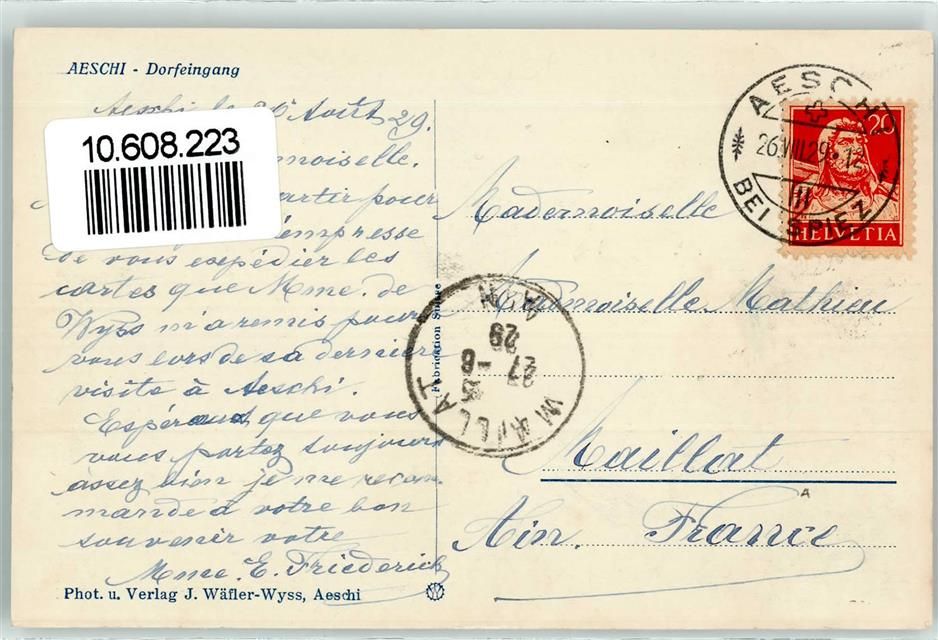 AESCHI - Dorfeingang
Aeschi le 26 Août 29.
10.608.223
moiselle.
partir pour
m'empresse
de vous expédier les
cartes que Mme. de
Wyss m'a remis pour
vous lors de sa dernière
visite à Aeschi.
Espérant que vous
vous portez toujours
assez bien je me recom
mande à votre bon
souvenir votre
Mme. E. Friederich
Phot. u. Verlag J. Wäfler-Wyss, Aeschi
Fabrication Suisse
AESCHI
26.VIII.29.-12
BEI SPIEZ
20
HELVETIA
Mademoiselle
Mademoiselle Mathieu
MAILLAT
27-8
29
AIN
Maillat
A
Ain. France